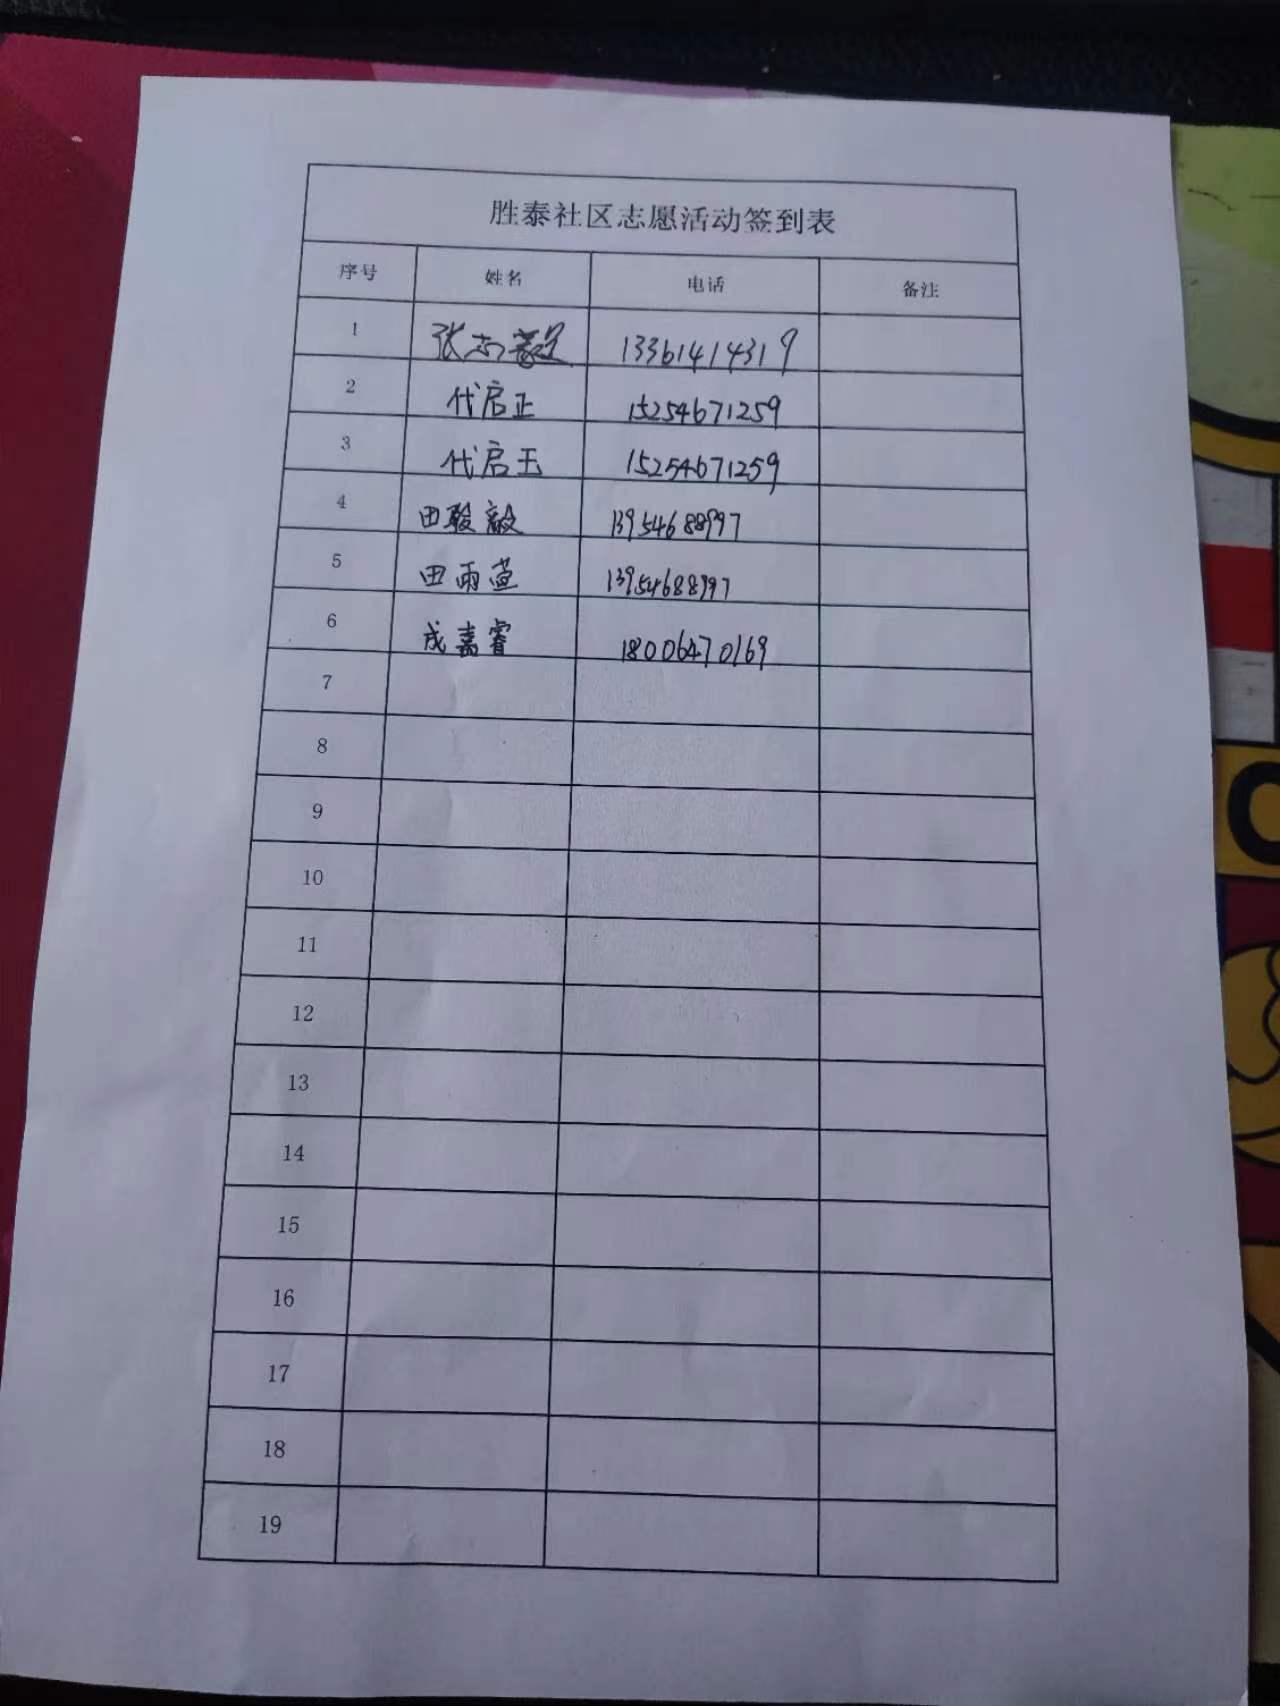 胜泰社区志愿活动签到表
序号 姓名 电话 备注
1 张志 13361414319
2 代启正 15254671259
3 代启玉 15254671259
4 田骏毅 13954688997
5 田雨萱 13954688997
6 成嘉睿 18006470169
7
8
9
10
11
12
13
14
15
16
17
18
19